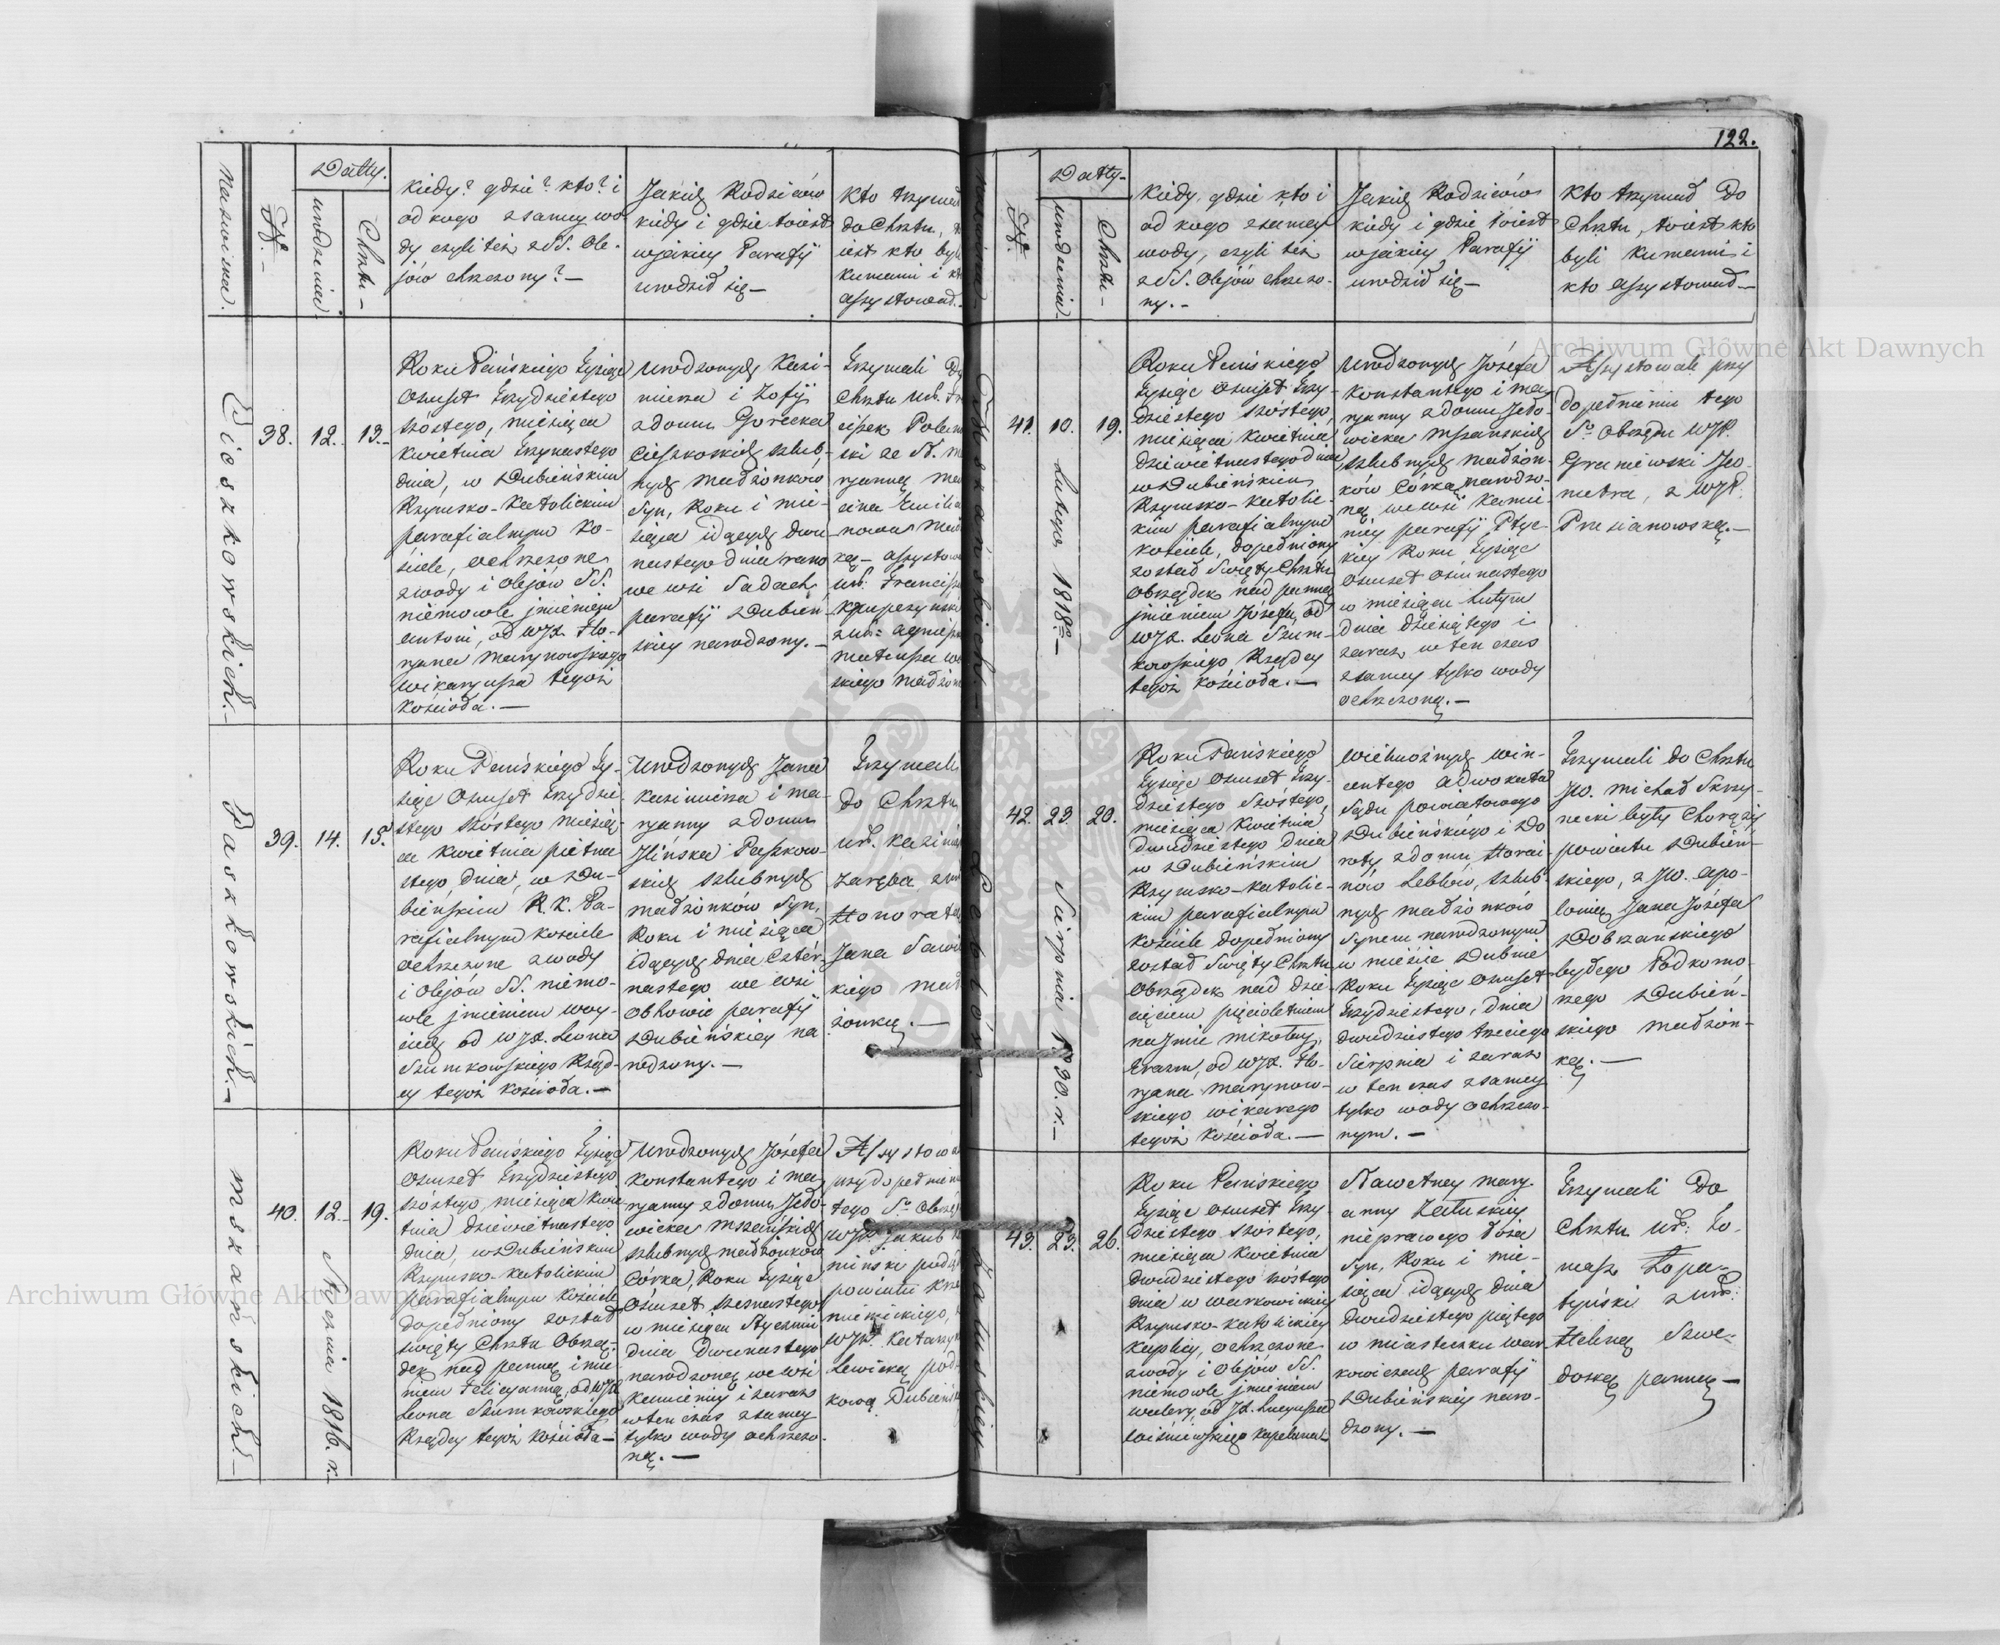 122.
Nazwiska.
№.
Datty.
urodzenia
Chrztu
Kiedy? gdzie? kto? i
od kogo z samey wo
dy czyli też z SS. Ole-
jów chrzczony?—
Jakich Rodziców
kiedy i gdzie toiest
w jakiey Parafji
urodził się—
Kto trzymał
do Chrztu,
iest kto byli
kumami i kto
assystował.
Cieszkowskich.—
38.
12.
13.
Roku Pańskiego tysiąc
osmset trzydziestego
szóstego, miesiąca
kwietnia trzynastego
dnia, w Dubieńskim
Rzymsko-Katolickim
parafialnym ko-
ściele, ochrzczone
z wody i Olejów SS.
niemowle jmieniem
Antoni, od WJX. Flo-
ryana Marynowskiego
wikaryusza tegoż
kościoła.—
Urodzonych Kazi-
mierza i Zofij
z domu Gorecka
Cieszkoskich szlub-
nych małżonków
Syn, Roku i mie-
siąca idących dwu-
nastego dnia rano
we wsi Sadach
parafji Dubień-
skiey narodzony.—
Trzymali Do
Chrztu Ur.
z
assystow
Ur: Francisz
Krupczyński
z Ur: Agnieszk
Mateusza
skiego małżon
Paszkowskich.—
39.
14.
15.
Roku Pańskiego ty-
siąc osmset trzydzie-
stego szóstego miesią-
ca kwietnia pietna
stego dnia, w Du-
bieńskim R. K. Pa-
rafialnym kościele
ochrzczone z wody
i Olejów SS. niemo-
wle jmieniem Woy-
ciech od WJX. Leona
Szumkowskiego Rządz-
cy tegoż kościoła.—
Urodzonych Jana
Kazimierza i Ma-
ryanny z domu
Jlińska Paszkow-
skich szlubnych
małżonków Syn,
Roku i miesiąca
idących dnia czter-
nastego we wsi
parafji
Dubieńskiey na
rodzony.—
Trzymali
do Chrztu
Ur. Kazimi
Zaręba z
Honorat
Jana Sawi
kiego mał
żonką.—
Mszańskich.—
40.
12.
Stycznia 1816. r.—
19.
Roku Pańskiego tysiąc
osmset trzydziestego
szóstego, miesiąca kwie
tnia dziewietnastego
dnia, w Dubieńskim
Rzymsko-Katolickim
parafialnym kościele
dopełniony został
święty Chrztu Obrzą-
dek nad panną jmie-
niem Felicyanna, od WJX
Leona Szumkowskiego
Rządcy tegoż kościoła—
Urodzonych Józefa
Konstantego i Ma
ryanny z domu Jeło-
wicka Mszańskich
szlubnych małżonków
Córka, Roku tysiąc
osmset szesnastego
w miesiącu Styczniu
dnia dwunastego
narodzoną we wsi
Kamienicy i zaraz
w ten czas z samey
tylko wody ochrzczo-
ną.—
Assystowa
przy dopełnieni
tego Sº Obrzę
WJP. Jakub
miński
powiatu Krze
mienieckiego,
WJP. Katarzyn
Lewicką
kową Dubieńs
Nazwiska
№.
Datty.
urodzenia
Chrztu—
Kiedy, gdzie kto i
od kogo z samey
wody, czyli też
z SS. Olejów chrzczo-
ny.—
Jakich Rodziców
kiedy i gdzie toiest
w jakiey Parafij
urodził się—
Kto trzymał Do
Chrztu, toiest kto
byli Kumami i
kto assystował—
Mszańskich.—
41.
10.
Lutego 1818º—
19.
Roku Pańskiego
tysiąc osmset trzy-
dziestego szóstego,
miesiąca kwietnia
dziewietnastego dnia
w Dubieńskim
Rzymsko-Katolic-
kim parafialnym
kościele, dopełniony
został święty Chrztu
Obrządek nad panną
jmieniem Józefa, od
WJX. Leona Szum-
kowskiego Rządcy
tegoż kościoła.—
Urodzonych Józefa
Konstantego i Ma
ryanny z domu Jeło-
wicka Mszańskich
szlubnych małżon-
ków Córką, narodzo-
ną we wsi Kamie-
nicy parafij Ptyc-
kiey Roku tysiąc
osmset osmnastego
w miesiącu Lutym
dnia dziesiątego i
zaraz w ten czas
z samey tylko wody
ochrzczoną.—
Assystowali przy
dopełnieniu tego
Sº Obrzędu WJP.
Graniewski Jeo-
metra, z WJP.
Prusianowską.—
Leblów.
42.
23.
Sierpnia 1830. r.—
20.
Roku Pańskiego
tysiąc osmset trzy-
dziestego szóstego,
miesiąca kwietnia
dwudziestego dnia
w Dubieńskim
Rzymsko-Katolic-
kim parafialnym
kościele dopełniony
został święty Chrztu
Obrządek nad dzie-
cięciem pięcioletniem
na jmie Mikołay,
Erazm, od WJX. Flo-
ryana Marynow-
skiego wikarego
tegoż kościoła.—
Wielmożnych Win-
centego adwokata
Sądu powiatowego
Dubieńskiego i Do
roty z domu Horai-
nów Leblów, szlub-
nych małżonków
Synem narodzonym
w mieście Dubnie
Roku tysiąc osmset
trzydziestego, dnia
dwudziestego trzeciego
Sierpnia i zaraz
w ten czas z samey
tylko wody ochrzczo-
nym.—
Trzymali do Chrztu
JW. Michał Skrzy-
necki były Chorąży
powiatu Dubień-
skiego, z JW. Apo-
lonią Jana Józefa
Dobrzanskiego
byłego Podkomo-
rzego Dubień-
skiego małżon-
ką.—
Załuskiey—
43.
23.
26.
Roku Pańskiego
tysiąc osmset trzy-
dziestego szóstego,
miesiąca kwietnia
dwudziestego szóstego
dnia w Warkowickiey
Rzymsko-Katolickiey
Kaplicy, ochrzczone
z wody i Olejów SS.
niemowle jmieniem
Walery, od JX. Lucyusza
Wiśniewskiego kapelana.
Szlawetney Mary-
anny Załuskiey
nieprawego łoża
Syn, Roku i mie-
siąca idących dnia
dwudziestego piątego
w miasteczku War
kowiczach parafij
Dubieńskiey naro-
dzony.—
Trzymali Do
Chrztu Ur: To-
masz Łopa-
tyński z Ur:
Heleną Szwe-
doską panną—
Archiwum Główne Akt Dawnych
Archiwum Główne Akt Dawnych